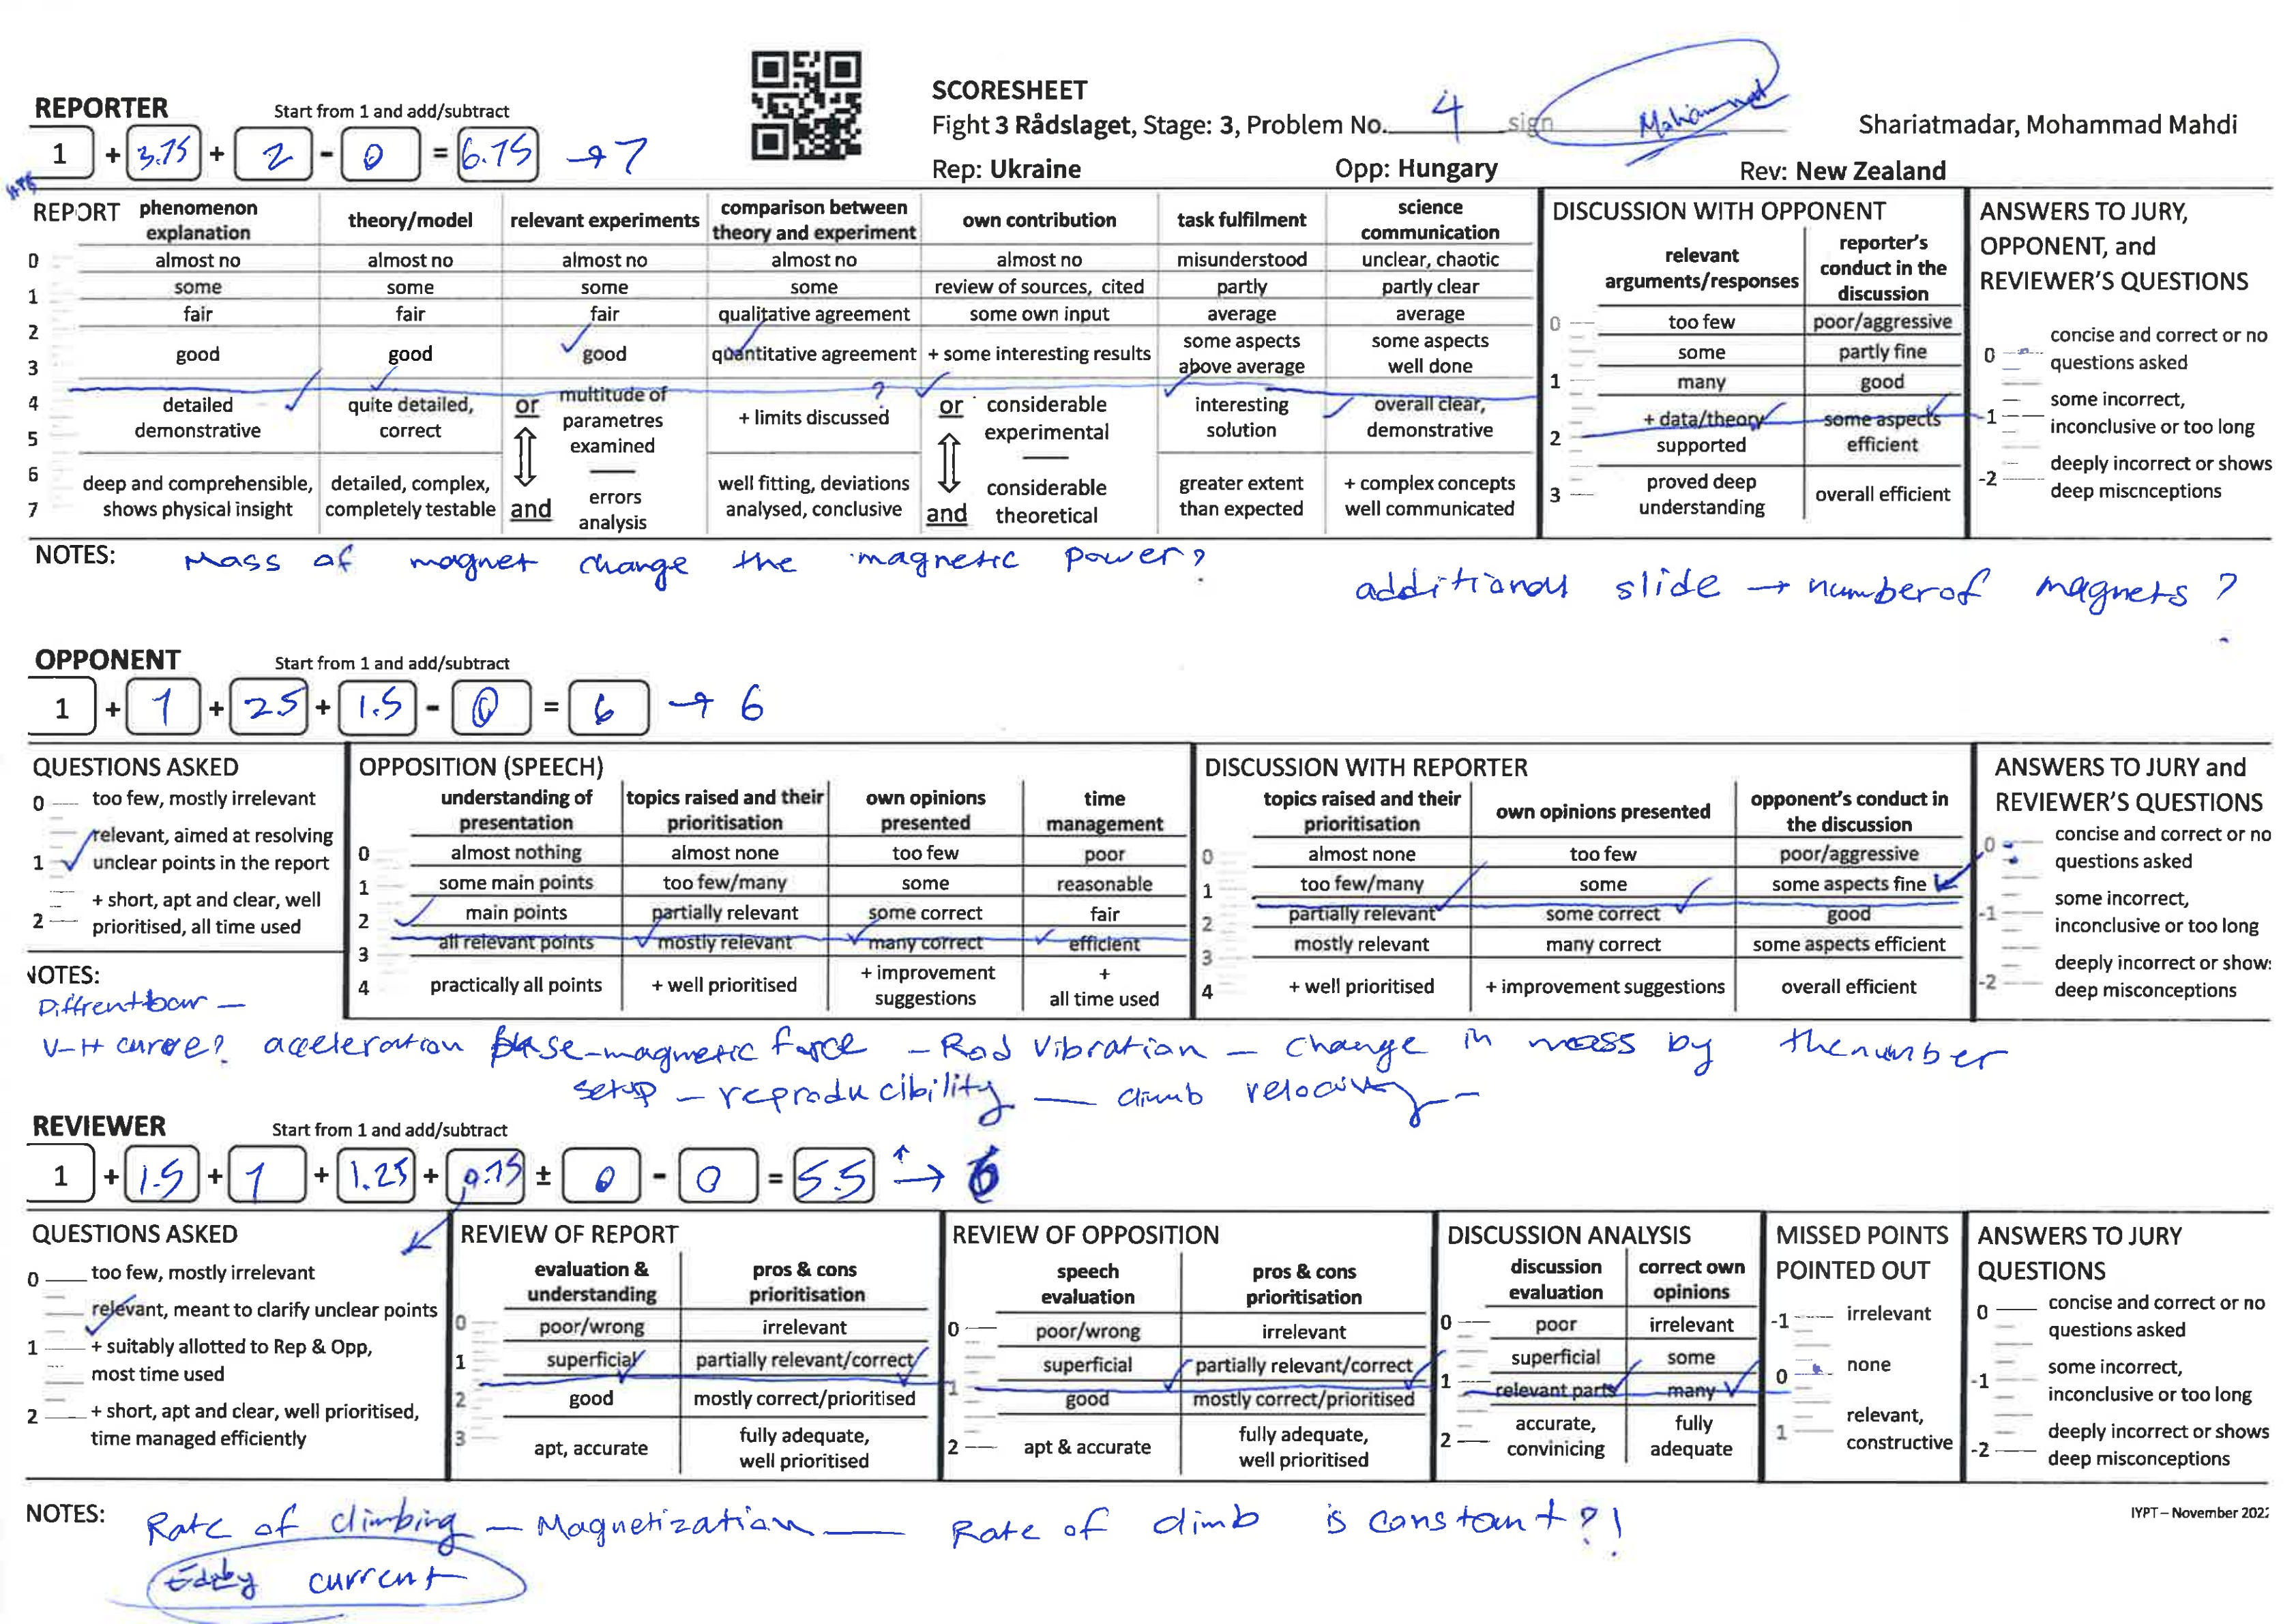 SCORESHEET
Fight 3 Rådslaget, Stage: 3, Problem No. 4 sign Mohammad Shariatmadar, Mohammad Mahdi
Rep: Ukraine Opp: Hungary Rev: New Zealand
REPORTER Start from 1 and add/subtract
1 + 3.75 + 2 - 0 = 6.75 → 7
REPORT
phenomenon explanation
theory/model
relevant experiments
comparison between theory and experiment
own contribution
task fulfilment
science communication
0 almost no almost no almost no almost no almost no misunderstood unclear, chaotic
1 some some some some review of sources, cited partly partly clear
fair fair fair qualitative agreement some own input average average
2
3 good good good quantitative agreement + some interesting results some aspects above average some aspects well done
4 5 detailed demonstrative quite detailed, correct or multitude of parametres examined + limits discussed ? or considerable experimental interesting solution overall clear, demonstrative
6 7 deep and comprehensible, shows physical insight detailed, complex, completely testable and errors analysis well fitting, deviations analysed, conclusive and considerable theoretical greater extent than expected + complex concepts well communicated
DISCUSSION WITH OPPONENT
relevant arguments/responses
reporter's conduct in the discussion
0 too few poor/aggressive
some partly fine
1 many good
2 + data/theory supported some aspects efficient
3 proved deep understanding overall efficient
ANSWERS TO JURY, OPPONENT, and REVIEWER'S QUESTIONS
0 concise and correct or no questions asked
-1 some incorrect, inconclusive or too long
-2 deeply incorrect or shows deep miscnceptions
NOTES: Mass of magnet change the magnetic power?
additional slide → number of magnets ?
OPPONENT Start from 1 and add/subtract
1 + 1 + 2.5 + 1.5 - 0 = 6 → 6
QUESTIONS ASKED
0 too few, mostly irrelevant
1 relevant, aimed at resolving unclear points in the report
2 + short, apt and clear, well prioritised, all time used
OPPOSITION (SPEECH)
understanding of presentation
topics raised and their prioritisation
own opinions presented
time management
0 almost nothing almost none too few poor
1 some main points too few/many some reasonable
2 main points partially relevant some correct fair
3 all relevant points mostly relevant many correct efficient
4 practically all points + well prioritised + improvement suggestions + all time used
DISCUSSION WITH REPORTER
topics raised and their prioritisation
own opinions presented
opponent's conduct in the discussion
0 almost none too few poor/aggressive
1 too few/many some some aspects fine
2 partially relevant some correct good
3 mostly relevant many correct some aspects efficient
4 + well prioritised + improvement suggestions overall efficient
ANSWERS TO JURY and REVIEWER'S QUESTIONS
0 concise and correct or no questions asked
-1 some incorrect, inconclusive or too long
-2 deeply incorrect or show: deep misconceptions
NOTES:
Diffrent bar —
V-H curve? acceleration phase - magnetic force - Rod Vibration - change in mass by the number
setup - reproducibility — climb velocity -
REVIEWER Start from 1 and add/subtract
1 + 1.5 + 1 + 1.25 + 0.75 ± 0 - 0 = 5.5 → 6
QUESTIONS ASKED
0 too few, mostly irrelevant
relevant, meant to clarify unclear points
1 + suitably allotted to Rep & Opp, most time used
2 + short, apt and clear, well prioritised, time managed efficiently
REVIEW OF REPORT
evaluation & understanding
pros & cons prioritisation
0 poor/wrong irrelevant
1 superficial partially relevant/correct
2 good mostly correct/prioritised
3 apt, accurate fully adequate, well prioritised
REVIEW OF OPPOSITION
speech evaluation
pros & cons prioritisation
0 poor/wrong irrelevant
superficial partially relevant/correct
1 good mostly correct/prioritised
2 apt & accurate fully adequate, well prioritised
DISCUSSION ANALYSIS
discussion evaluation
correct own opinions
0 poor irrelevant
superficial some
1 relevant parts many
2 accurate, convinicing fully adequate
MISSED POINTS POINTED OUT
-1 irrelevant
0 none
1 relevant, constructive
ANSWERS TO JURY QUESTIONS
0 concise and correct or no questions asked
-1 some incorrect, inconclusive or too long
-2 deeply incorrect or shows deep misconceptions
NOTES: Rate of climbing — Magnetization — Rate of climb is constant ?!
Eddy current
IYPT – November 202